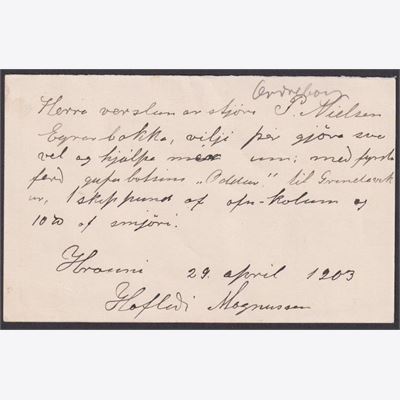 Herra verslunarstjóri P. Nielsen
Eyrarbakka, vilji þér gjöra svo
vel og hjálpa mér um; með fyrstu
ferð gufubátsins „Oddur" til Grindavík
ur, 1 skippund af ofn-kolum og
10 af smjöri.
Hrauni 29. april 1903
Hafliði Magnusson